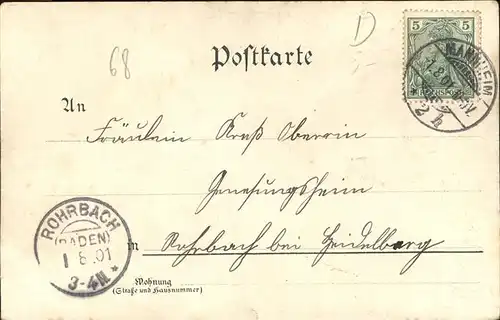 68
D
Postkarte
5 5
MANNHEIM
1.8.01
2 h
An
Fräulein Kreß Oberrin
Genesungsheim
in Rohrbach bei Heidelberg
ROHRBACH
(BADEN)
1 8.01
3-4N.
Wohnung
(Straße und Hausnummer)